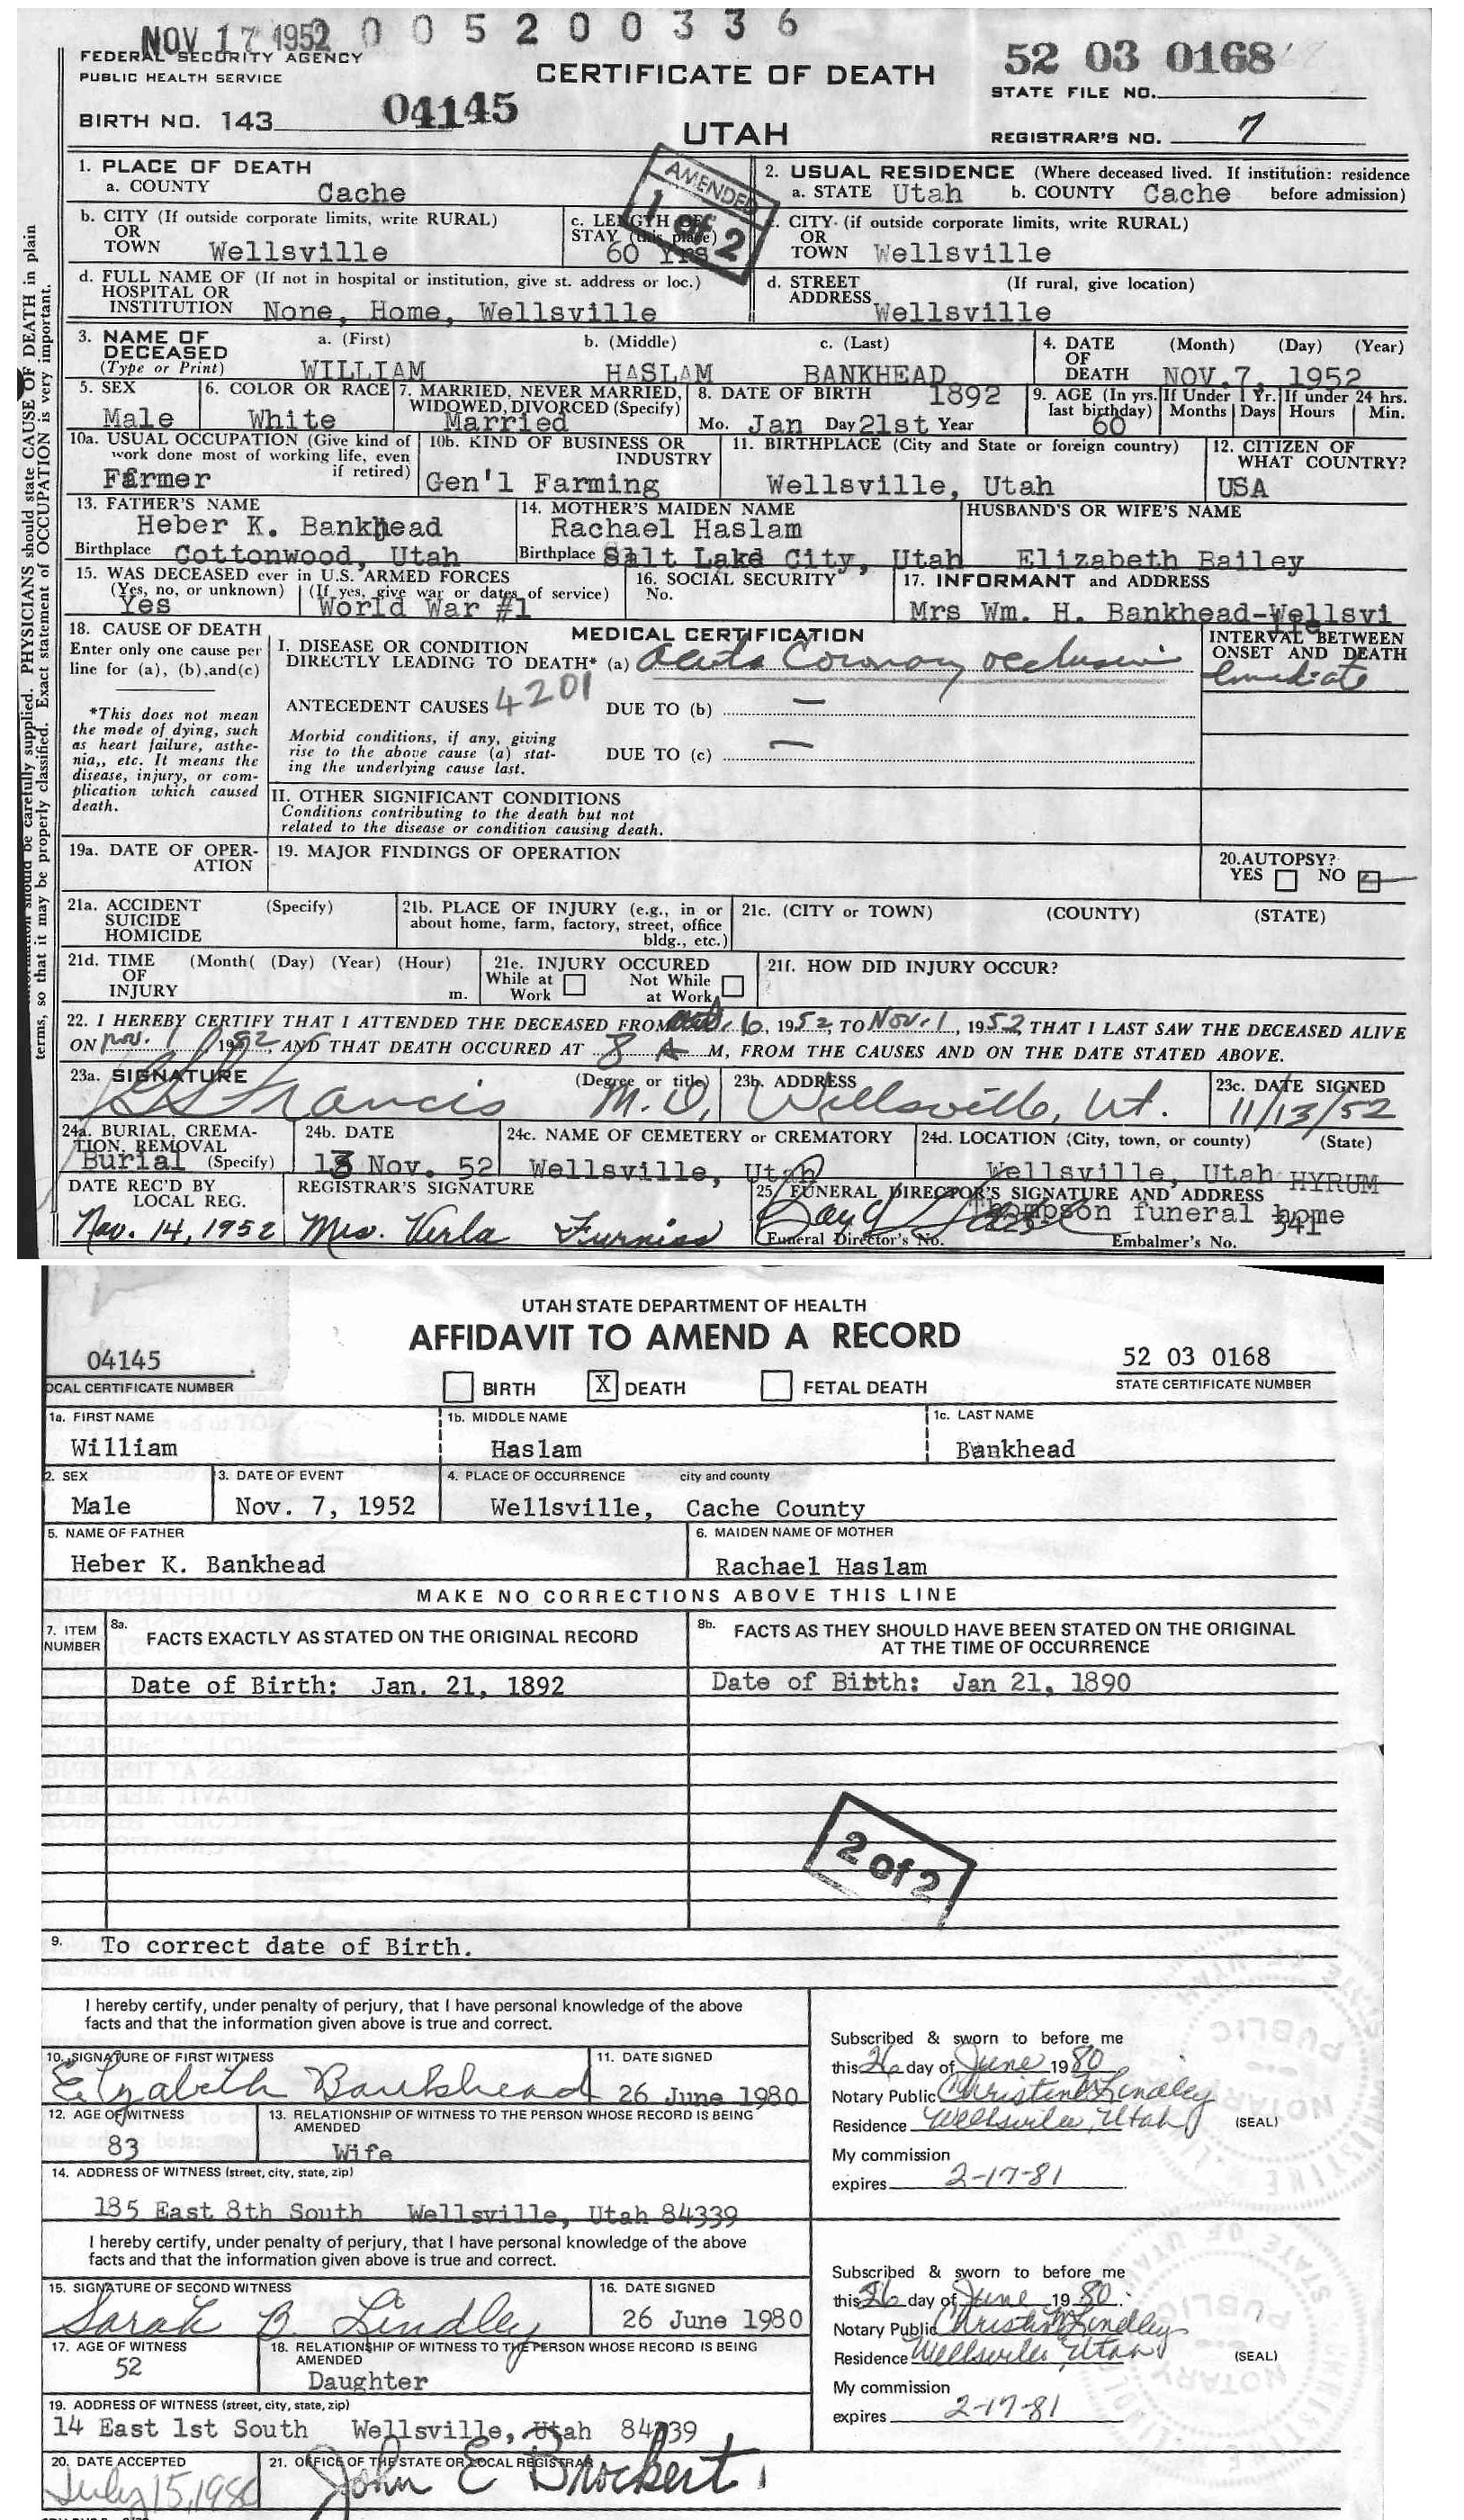 NOV 17 1952 0 0 5 2 0 0 3 3 6
FEDERAL SECURITY AGENCY
PUBLIC HEALTH SERVICE
CERTIFICATE OF DEATH
52 03 0168
STATE FILE NO.
BIRTH NO. 143 04145
UTAH
REGISTRAR'S NO. 7
AMENDED
1 of 2
1. PLACE OF DEATH
a. COUNTY Cache
2. USUAL RESIDENCE (Where deceased lived. If institution: residence before admission)
a. STATE Utah b. COUNTY Cache
b. CITY (If outside corporate limits, write RURAL)
OR
TOWN Wellsville
c. LENGTH OF
STAY (this place)
60 Yrs
c. CITY (if outside corporate limits, write RURAL)
OR
TOWN Wellsville
d. FULL NAME OF (If not in hospital or institution, give st. address or loc.)
HOSPITAL OR
INSTITUTION None, Home, Wellsville
d. STREET (If rural, give location)
ADDRESS Wellsville
3. NAME OF DECEASED (Type or Print)
a. (First) b. (Middle) c. (Last)
WILLIAM HASLAM BANKHEAD
4. DATE OF DEATH (Month) (Day) (Year)
NOV.7, 1952
5. SEX
Male
6. COLOR OR RACE
White
7. MARRIED, NEVER MARRIED, WIDOWED, DIVORCED (Specify)
Married
8. DATE OF BIRTH 1892
Mo. Jan Day 21st Year
9. AGE (In yrs. last birthday)
60
If Under 1 Yr. Months Days
If under 24 hrs. Hours Min.
10a. USUAL OCCUPATION (Give kind of work done most of working life, even if retired)
Farmer
10b. KIND OF BUSINESS OR INDUSTRY
Gen'l Farming
11. BIRTHPLACE (City and State or foreign country)
Wellsville, Utah
12. CITIZEN OF WHAT COUNTRY?
USA
13. FATHER'S NAME
Heber K. Bankhead
Birthplace Cottonwood, Utah
14. MOTHER'S MAIDEN NAME
Rachael Haslam
Birthplace Salt Lake City, Utah
HUSBAND'S OR WIFE'S NAME
Elizabeth Bailey
15. WAS DECEASED ever in U.S. ARMED FORCES
(Yes, no, or unknown) (If yes, give war or dates of service)
Yes World War #1
16. SOCIAL SECURITY No.
17. INFORMANT and ADDRESS
Mrs Wm. H. Bankhead-Wellsvi
lle
18. CAUSE OF DEATH
Enter only one cause per line for (a), (b), and (c)
*This does not mean the mode of dying, such as heart failure, asthenia,, etc. It means the disease, injury, or complication which caused death.
MEDICAL CERTIFICATION
I. DISEASE OR CONDITION
DIRECTLY LEADING TO DEATH* (a) Acute Coronary occlusion
INTERVAL BETWEEN ONSET AND DEATH
Immediate
ANTECEDENT CAUSES 4201 DUE TO (b) —
Morbid conditions, if any, giving rise to the above cause (a) stating the underlying cause last.
DUE TO (c) —
II. OTHER SIGNIFICANT CONDITIONS
Conditions contributing to the death but not related to the disease or condition causing death.
19a. DATE OF OPERATION
19. MAJOR FINDINGS OF OPERATION
20. AUTOPSY?
YES NO
21a. ACCIDENT (Specify)
SUICIDE
HOMICIDE
21b. PLACE OF INJURY (e.g., in or about home, farm, factory, street, office bldg., etc.)
21c. (CITY or TOWN) (COUNTY) (STATE)
21d. TIME OF INJURY (Month( (Day) (Year) (Hour)
m.
21e. INJURY OCCURED
While at Work Not While at Work
21f. HOW DID INJURY OCCUR?
22. I HEREBY CERTIFY THAT I ATTENDED THE DECEASED FROM 6, 1952, TO Nov. 1, 1952 THAT I LAST SAW THE DECEASED ALIVE
ON Nov. 1 1952, AND THAT DEATH OCCURED AT 8 A M, FROM THE CAUSES AND ON THE DATE STATED ABOVE.
23a. SIGNATURE (Degree or title)
Francis M.D.
23b. ADDRESS
Wellsville, Ut.
23c. DATE SIGNED
11/13/52
24a. BURIAL, CREMATION, REMOVAL (Specify)
Burial
24b. DATE
13 Nov. 52
24c. NAME OF CEMETERY or CREMATORY
Wellsville, Utah
24d. LOCATION (City, town, or county) (State)
Wellsville, Utah HYRUM
DATE REC'D BY LOCAL REG.
Nov. 14, 1952
REGISTRAR'S SIGNATURE
Mrs. Verla Furniss
25. FUNERAL DIRECTOR'S SIGNATURE AND ADDRESS
Thompson funeral home
Funeral Director's No.
Embalmer's No. 341
should be carefully supplied. PHYSICIANS should state CAUSE OF DEATH in plain
terms, so that it may be properly classified. Exact statement of OCCUPATION is very important.
UTAH STATE DEPARTMENT OF HEALTH
AFFIDAVIT TO AMEND A RECORD
04145
OCAL CERTIFICATE NUMBER
BIRTH X DEATH FETAL DEATH
52 03 0168
STATE CERTIFICATE NUMBER
1a. FIRST NAME 1b. MIDDLE NAME 1c. LAST NAME
William Haslam Bankhead
2. SEX 3. DATE OF EVENT 4. PLACE OF OCCURRENCE city and county
Male Nov. 7, 1952 Wellsville, Cache County
5. NAME OF FATHER 6. MAIDEN NAME OF MOTHER
Heber K. Bankhead Rachael Haslam
MAKE NO CORRECTIONS ABOVE THIS LINE
7. ITEM NUMBER
8a. FACTS EXACTLY AS STATED ON THE ORIGINAL RECORD
8b. FACTS AS THEY SHOULD HAVE BEEN STATED ON THE ORIGINAL AT THE TIME OF OCCURRENCE
Date of Birth: Jan. 21, 1892 Date of Birth: Jan 21, 1890
2 of 2
9. To correct date of Birth.
I hereby certify, under penalty of perjury, that I have personal knowledge of the above
facts and that the information given above is true and correct.
10. SIGNATURE OF FIRST WITNESS 11. DATE SIGNED
Elizabeth Bankhead 26 June 1980
12. AGE OF WITNESS 13. RELATIONSHIP OF WITNESS TO THE PERSON WHOSE RECORD IS BEING AMENDED
83 Wife
14. ADDRESS OF WITNESS (street, city, state, zip)
185 East 8th South Wellsville, Utah 84339
Subscribed & sworn to before me
this 26 day of June 1980
Notary Public Christine M Lindley
Residence Wellsville, Utah (SEAL)
My commission
expires 2-17-81
I hereby certify, under penalty of perjury, that I have personal knowledge of the above
facts and that the information given above is true and correct.
15. SIGNATURE OF SECOND WITNESS 16. DATE SIGNED
Sarah B. Lindley 26 June 1980
17. AGE OF WITNESS 18. RELATIONSHIP OF WITNESS TO THE PERSON WHOSE RECORD IS BEING AMENDED
52 Daughter
19. ADDRESS OF WITNESS (street, city, state, zip)
14 East 1st South Wellsville, Utah 84339
Subscribed & sworn to before me
this 26 day of June 1980.
Notary Public Christine M Lindley
Residence Wellsville, Utah (SEAL)
My commission
expires 2-17-81
20. DATE ACCEPTED 21. OFFICE OF THE STATE OR LOCAL REGISTRAR
July 15, 1980 John E Brockert